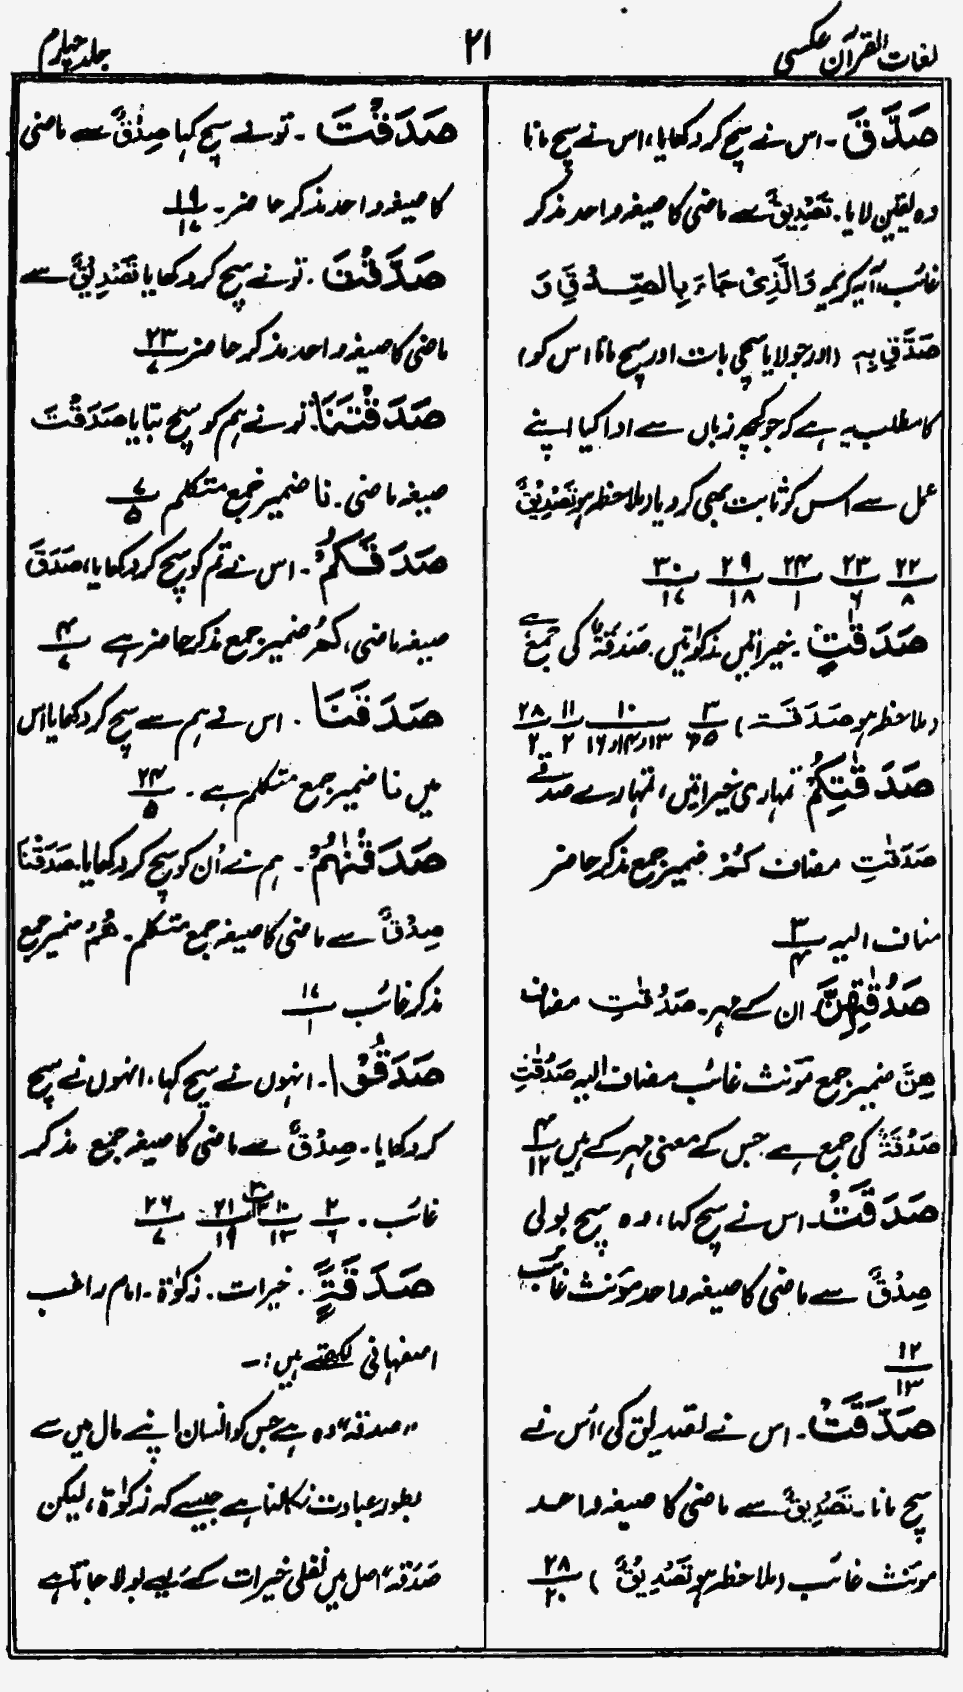 لغات القرآن عکسی
۲۱
جلد چہارم
صَدَّقَ ۔ اس نے سچ کر دکھایا، اس نے سچ مانا
وہ یقین لایا۔ تَصْدِیْقٌ سے ماضی کا صیغہ واحد مذکر
غائب، آیہ کریمہ وَالَّذِیْ جَاءَ بِالصِّدْقِ وَ
صَدَّقَ بِہٖ (اور جو لایا سچی بات اور سچ مانا اس کو)
کا مطلب یہ ہے کہ جو کچھ زباں سے ادا کیا اپنے
عمل سے اس کو ثابت بھی کر دیا (ملاحظہ ہو تَصْدِیْقٌ)
۲۲/۸ ۲۳/۶ ۲۴/۱ ۲۹/۱۸ ۳۰/۱۷
صَدَقٰتٍ ۔ خیراتیں زکوٰتیں۔ صَدَقَۃٌ کی جمع ہے
(ملاحظہ ہو صَدَقَۃ) ۳/۶۵ ۱۰/۱۳و۱۴و۱۶ ۱۱/۲ ۲۸/۲
صَدَقٰتِکُمْ تمہاری خیراتیں، تمہارے صدقے
صَدَقٰتِ مضاف کُمْ ضمیر جمع مذکر حاضر
مضاف الیہ ۳/۴
صَدُقٰتِهِنَّ ان کے مہر۔ صَدُقٰتِ مضاف
هِنَّ ضمیر جمع مؤنث غائب مضاف الیہ صَدُقٰتِ
صَدُقَۃٌ کی جمع ہے جس کے معنی مہر کے ہیں ۴/۱۲
صَدَقَتْ۔ اس نے سچ کہا، وہ سچ بولی
صِدْقٌ سے ماضی کا صیغہ واحد مؤنث غائب
۱۲/۱۳
صَدَّقَتْ۔ اس نے تصدیق کی، اُس نے
سچ مانا۔ تَصْدِیْقٌ سے ماضی کا صیغہ واحد
مؤنث غائب (ملاحظہ ہو تَصْدِیْقٌ) ۲۸/۲۰
صَدَقْتَ ۔ تو نے سچ کہا صِدْقٌ سے ماضی
کا صیغہ واحد مذکر حاضر۔ ۱۹/۱۷
صَدَّقْتَ ۔ تو نے سچ کر دکھایا تَصْدِیْقٌ سے
ماضی کا صیغہ واحد مذکر حاضر ۲۳/۷
صَدَقْتَنَا: تو نے ہم کو سچ بتایا صَدَقْتَ
صیغہ ماضی۔ نا ضمیر جمع متکلم ۷/۵
صَدَقَکُمْ ۔ اس نے تم کو سچ کر دکھایا، صَدَقَ
صیغہ ماضی، کُمْ ضمیر جمع مذکر حاضر ہے ۴/۷
صَدَقَنَا ۔ اس نے ہم سے سچ کر دکھایا اس
میں نا ضمیر جمع متکلم ہے ۔ ۲۴/۵
صَدَقْنٰهُمْ ۔ ہم نے اُن کو سچ کر دکھایا۔ صَدَقْنَا
صِدْقٌ سے ماضی کا صیغہ جمع متکلم۔ هُمْ ضمیر جمع
مذکر غائب ۱۷/۱
صَدَقُوْا ۔ انہوں نے سچ کہا، انہوں نے سچ
کر دکھایا۔ صِدْقٌ سے ماضی کا صیغہ جمع مذکر
غائب ۔ ۲/۶ ۱۰/۱۳ ۲۱/۱۹ ۲۶/۷
صَدَقَۃٍ ۔ خیرات ۔ زکوٰۃ ۔ امام راغب
اصفہانی لکھتے ہیں :۔
"صدقہ" وہ ہے جس کو انسان اپنے مال میں سے
بطور عبادت نکالتا ہے جیسے کہ زکوٰۃ، لیکن
صَدَقہ، اصل میں نفلی خیرات کے لیے بولا جاتا ہے